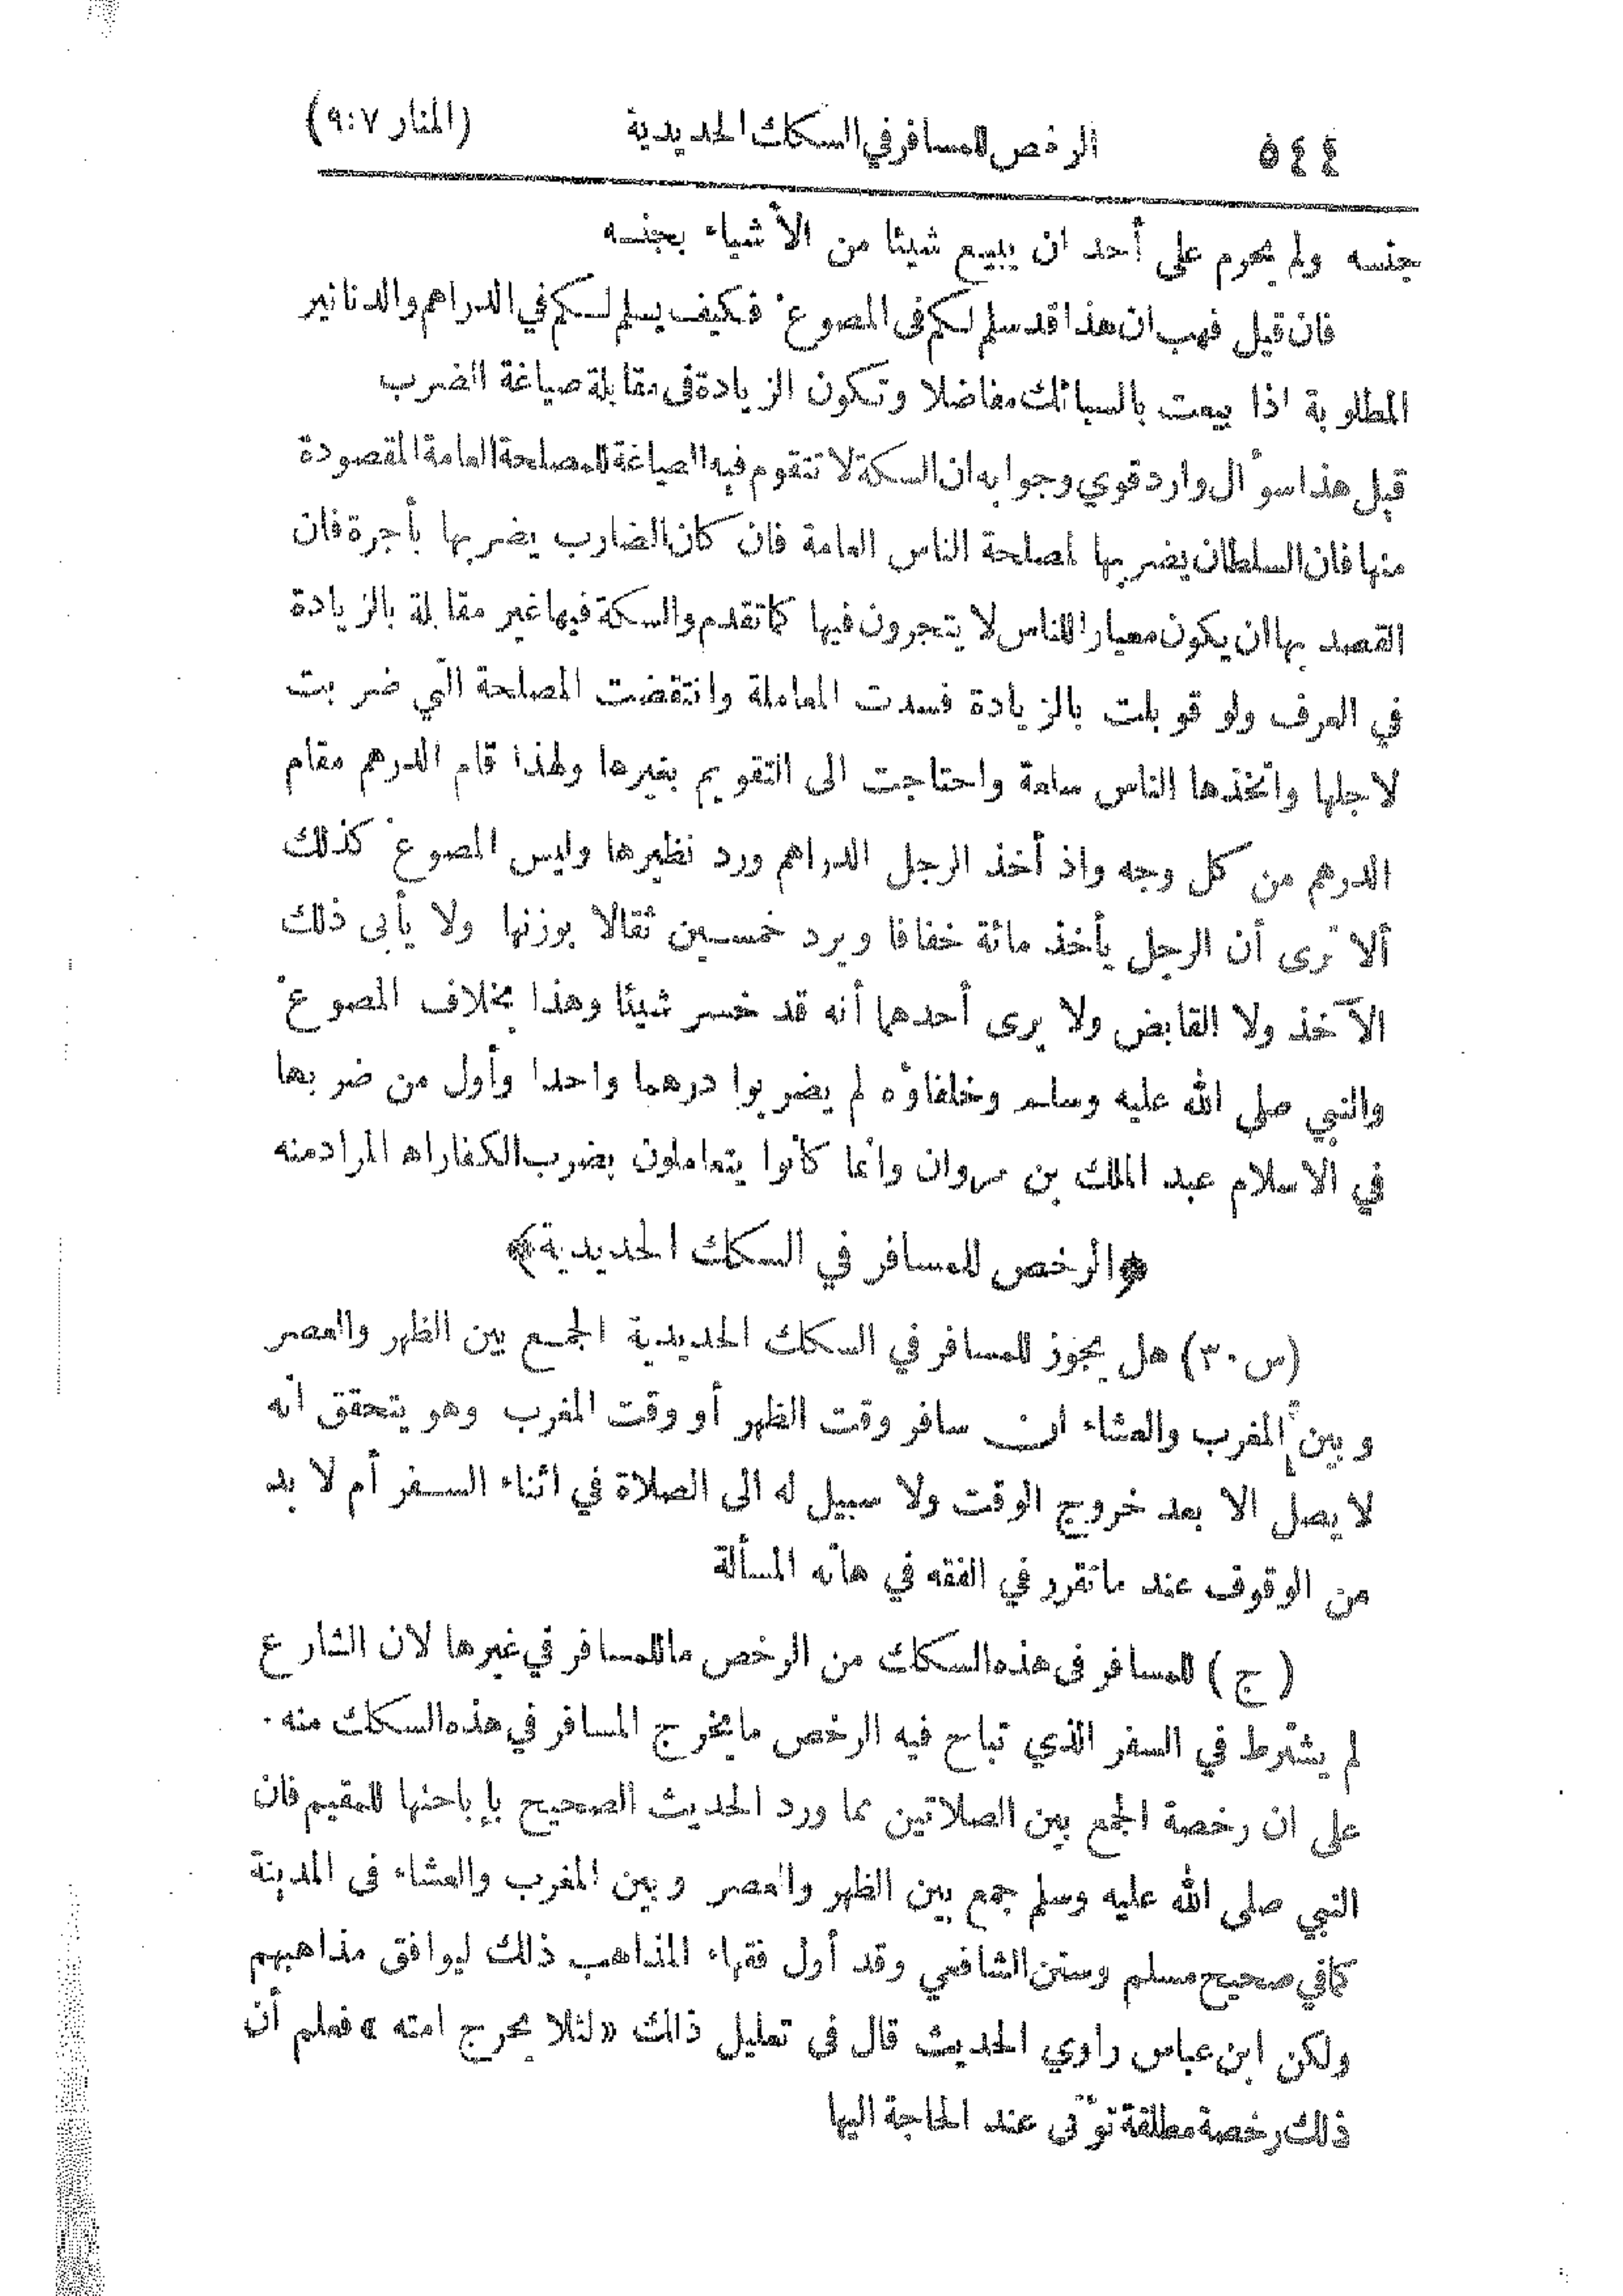 ٥٤٤ الرخص للمسافر في السكك الحديدية (المنار ٩:٧)
بجنسه ولم يحرم على أحد ان يبيع شيئا من الأشياء بجنسه
فان قيل فهب ان هذا قد سلم لكم في المصوغ فكيف يسلم لكم في الدراهم والدنانير
المطلوبة اذا بيعت بالسبائك مفاضلا وتكون الزيادة في مقابلة صياغة الضرب
قيل هذا سؤال وارد قوي وجوابه ان السكة لا تتقوم فيه الصياغة للمصلحة العامة المقصودة
منها فان السلطان يضربها لمصلحة الناس العامة فان كان الضارب يضربها بأجرة فان
القصد بها ان يكون معيارا للناس لا يتجرون فيها كما تقدم والسكة فيها غير مقابلة بالزيادة
في العرف ولو قوبلت بالزيادة فسدت المعاملة وانتقضت المصلحة التي ضربت
لاجلها واتخذها الناس سلعة واحتاجت الى التقويم بغيرها ولهذا قام الدرهم مقام
الدرهم من كل وجه واذ أخذ الرجل الدراهم ورد نظيرها وليس المصوغ كذلك
ألا ترى أن الرجل يأخذ مائة خفافا ويرد خمسين ثقالا بوزنها ولا يأبى ذلك
الآخذ ولا القابض ولا يرى أحدهما أنه قد خسر شيئا وهذا بخلاف المصوغ
والنبي صلى الله عليه وسلم وخلفاؤه لم يضربوا درهما واحدا وأول من ضربها
في الاسلام عبد الملك بن مروان وانما كانوا يتعاملون بضرب الكفار اه المراد منه
﴿الرخص للمسافر في السكك الحديدية﴾
(س٣٠) هل يجوز للمسافر في السكك الحديدية الجمع بين الظهر والعصر
وبين المغرب والعشاء ان سافر وقت الظهر أو وقت المغرب وهو يتحقق انه
لا يصل الا بعد خروج الوقت ولا سبيل له الى الصلاة في اثناء السفر أم لا بد
من الوقوف عند ما تقرر في الفقه في هاته المسألة
(ج) للمسافر في هذه السكك من الرخص ما للمسافر في غيرها لان الشارع
لم يشترط في السفر الذي تباح فيه الرخص ما يخرج المسافر في هذه السكك منه.
على ان رخصة الجمع بين الصلاتين مما ورد الحديث الصحيح بإباحتها للمقيم فان
النبي صلى الله عليه وسلم جمع بين الظهر والعصر وبين المغرب والعشاء في المدينة
كما في صحيح مسلم وسنن الشافعي وقد أول فقهاء المذاهب ذلك ليوافق مذاهبهم
ولكن ابن عباس راوي الحديث قال في تعليل ذلك «لئلا يحرج امته» فعلم أن
ذلك رخصة مطلقة تؤتى عند الحاجة اليها